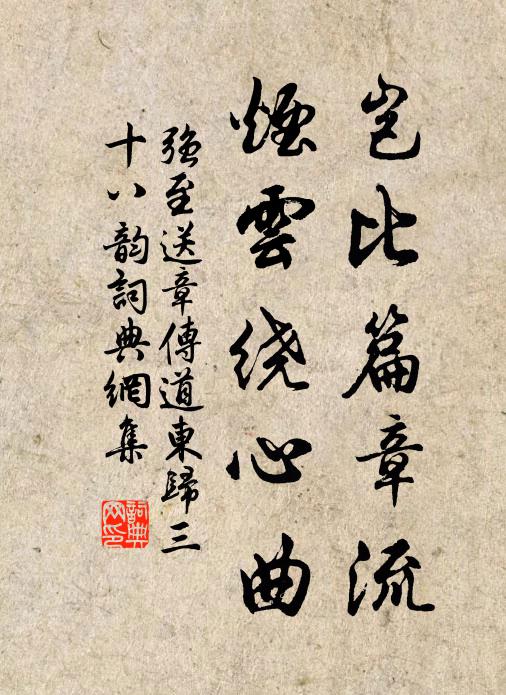 岂比篇章流
煙雲绕心曲
强至送章傳道東歸三
十八韵詞典網集
詞典
网印